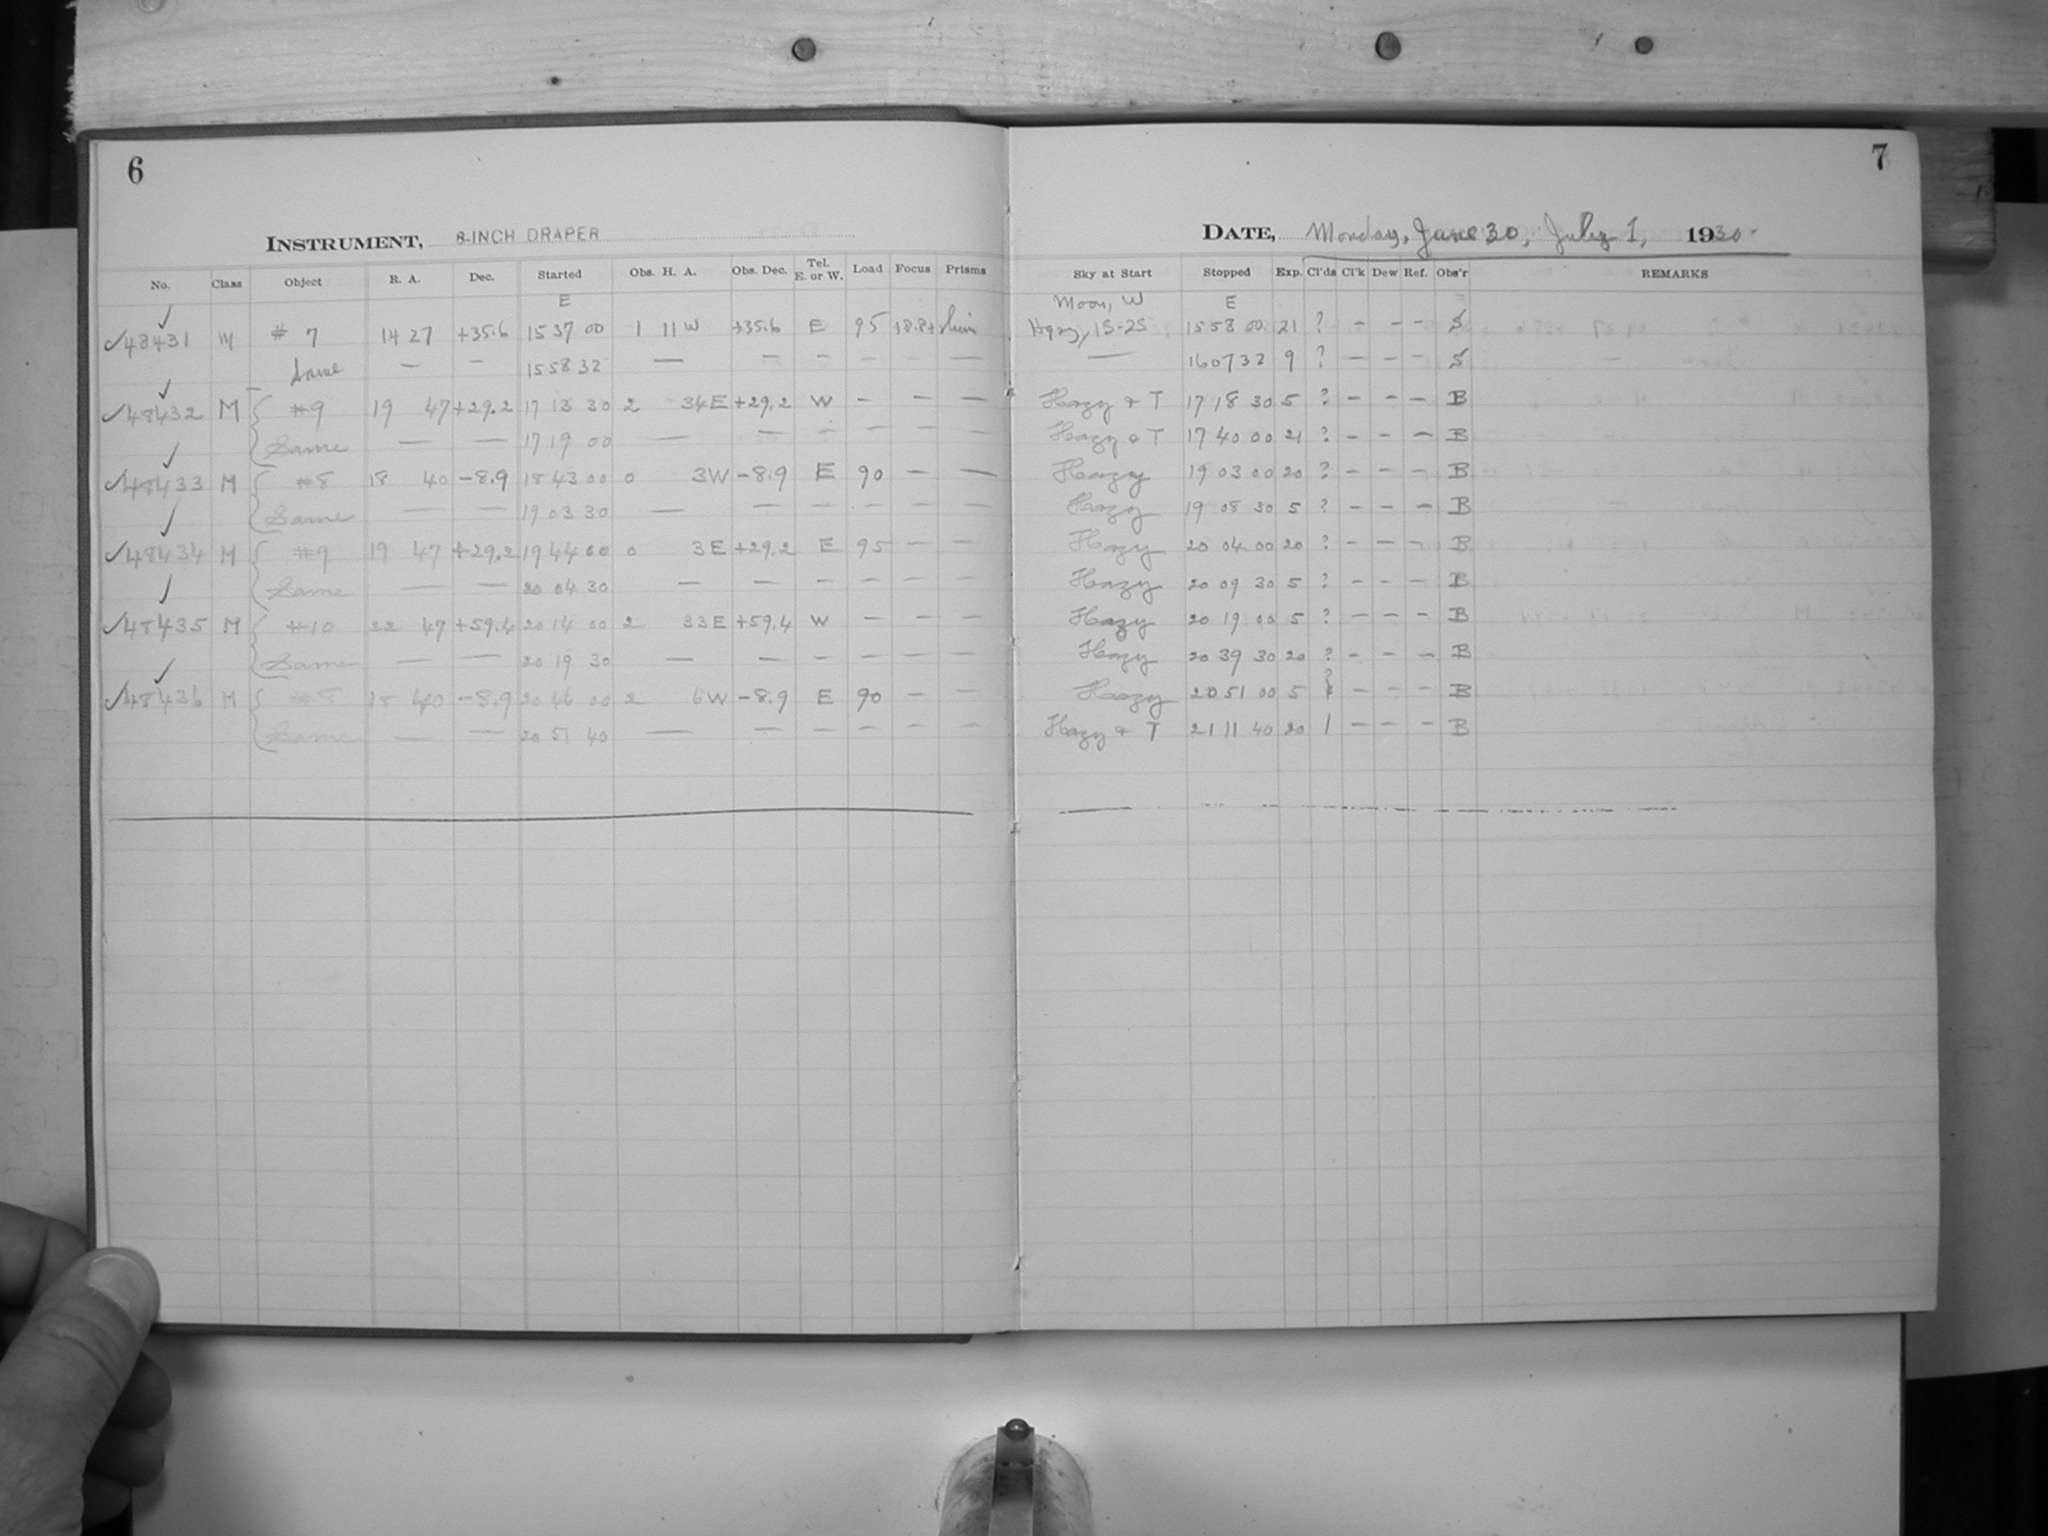 6
INSTRUMENT, 8-INCH DRAPER
No. Class Object R. A. Dec. Started Obs. H. A. Obs. Dec. Tel. E. or W. Load Focus Prisms
E
✓48431 M # 7 14 27 +35.6 15 37 00 1 11 W +35.6 E 95
Same — — 15 58 32 — — – – – – —
✓48432 M #9 19 47 +29.2 17 13 30 2 34 E +29.2 W – — —
Same — — 17 19 00 — — – – – – —
✓48433 M #8 18 40 -8.9 18 43 00 0 3 W -8.9 E 90 – —
Same — — 19 03 30 — — – – – – —
✓48434 M #9 19 47 +29.2 19 44 00 0 3 E +29.2 E 95 — —
Same — — 20 04 30 — — – – – – —
✓48435 M #10 22 47 +59.4 20 14 00 2 33 E +59.4 W – – —
Same — — 20 19 30 — — – – – – —
✓48436 M #8 18 40 -8.9 20 46 00 2 6 W -8.9 E 90 – —
Same — — 20 51 40 — — – – – – —
7
DATE, Monday, June 30, July 1, 1930.
Sky at Start Stopped Exp. Cl'ds Cl'k Dew Ref. Obs'r REMARKS
Moon, W E
Hazy, 15-25 15 58 00 21 ? – – – S
— 16 07 32 9 ? – – – S
Hazy & T 17 18 30 5 ? – – – B
Hazy & T 17 40 00 21 ? – – – B
Hazy 19 03 00 20 ? – – – B
Hazy 19 08 30 5 ? – – – B
Hazy 20 04 00 20 ? – – – B
Hazy 20 09 30 5 ? – – – B
Hazy 20 19 00 5 ? – – – B
Hazy 20 39 30 20 ? – – – B
Hazy 20 51 00 5 ? – – – B
Hazy & T 21 11 40 20 1 – – – B